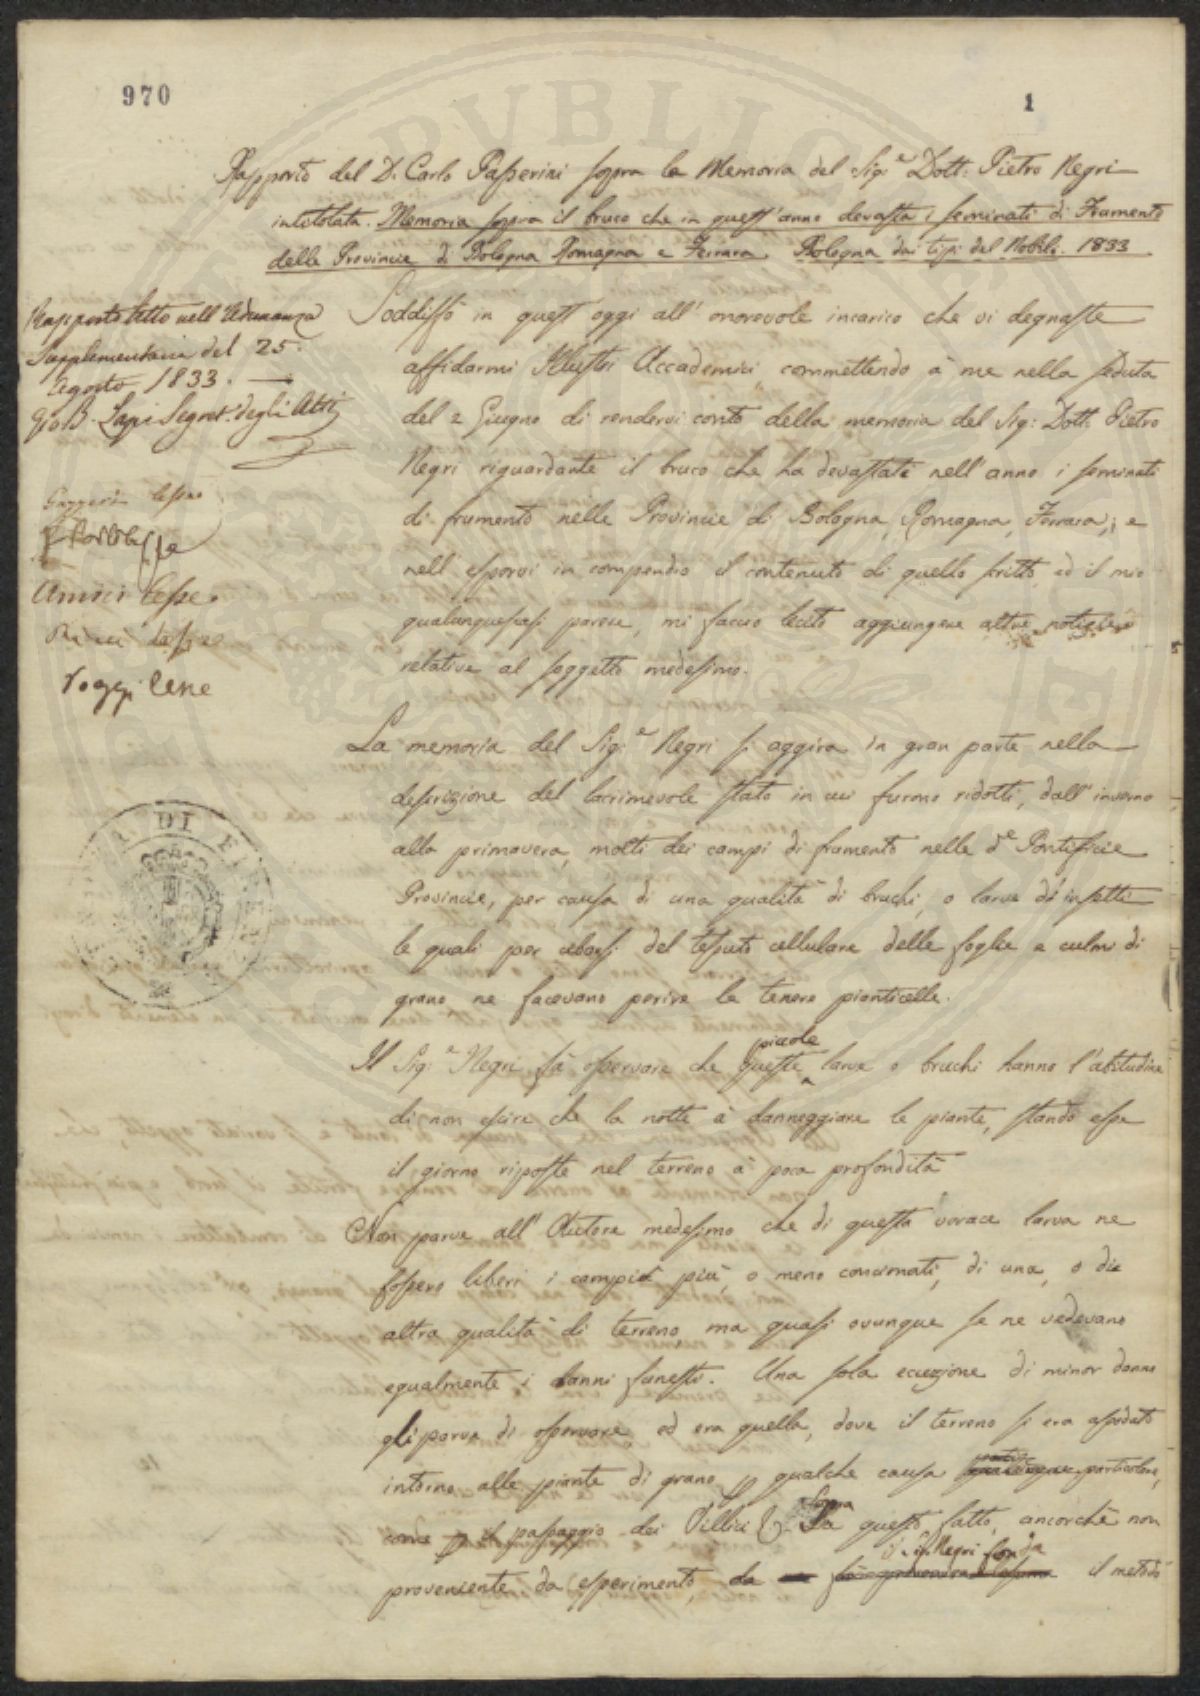 970
1
Rapporto del D. Carlo Passerini sopra la Memoria del Sig.e Dott. Pietro Negri
intitolata. Memoria sopra il bruco che in quest'anno devasta i seminati di Frumento
delle Provincie di Bologna Romagna e Ferrara. Bologna dai tipi del Nobili. 1833
Rapporto letto nell'Adunanza
Supplementaria del 25.
Agosto 1833.
Gio B. Lapi Segret. degli Atti
Gazzeri lesse
Amici lesse
lesse
Poggi lesse
Soddisfo in quest'oggi all'onorevole incarico che vi degnaste
affidarmi Illustri Accademici commettendo à me nella seduta
del 2 Giugno di rendervi conto della memoria del Sig: Dott. Pietro
Negri riguardante il bruco che ha devastato nell'anno i seminati
di frumento nelle Provincie di Bologna, Romagna, Ferrara; e
nell'esporvi in compendio il contenuto di quello scritto, ed il mio
qualunquesiasi parere, mi faccio lecito aggiungere altre notizie
relative al soggetto medesimo.
La memoria del Sig.e Negri si aggira in gran parte nella
descrizione del lacrimevole stato in cui furono ridotti, dall'inverno
alla primavera, molti dei campi di frumento nelle d.e Pontificie
Provincie, per causa di una qualità di bruchi, o larve di insetti
le quali per cibarsi del tessuto cellulare delle foglie e culmi di
grano ne facevano perire le tenere pianticelle.
Il Sig.e Negri fà osservare che queste piccole larve o bruchi hanno l'abitudine
di non escire che la notte à danneggiare le piante, stando esse
il giorno riposte nel terreno à poca profondità
Non parve all'Autore medesimo che di questa vorace larva ne
fossero liberi i campi più, o meno concimati, di una, o di
altra qualità di terreno, ma quasi ovunque se ne vedevano
egualmente i danni funesti. Una sola eccezione di minor danno
gli parve di osservare ed era quella, dove il terreno si era assodato
intorno alle piante di grano p qualche causa particolare,
come p il passaggio dei Villici &. Sopra questo fatto, ancorchè non
proveniente da esperimento, il S. Negri fonda il metodo